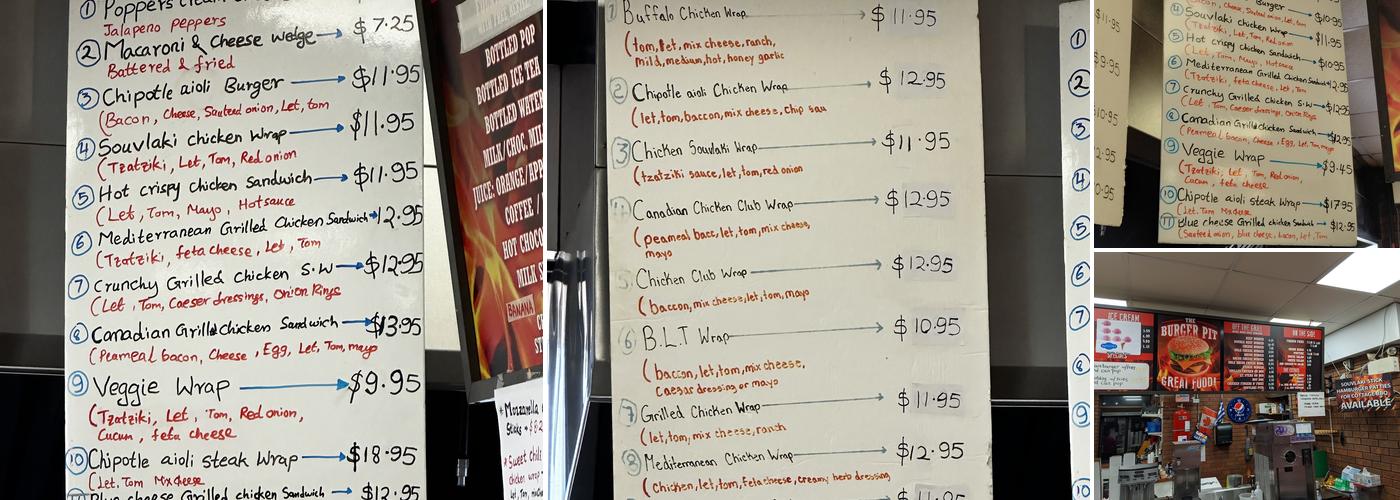 ① Poppers cream
Jalapeno peppers
② Macaroni & Cheese wedge → $7.25
Battered & fried
③ Chipotle aioli Burger → $11.95
(Bacon, Cheese, Sauteed onion, Let, tom
④ Souvlaki chicken Wrap → $11.95
(Tzatziki, Let, Tom, Red onion
⑤ Hot crispy chicken Sandwich → $11.95
(Let, Tom, Mayo, Hotsauce
⑥ Mediterranean Grilled Chicken Sandwich → 12.95
(Tzatziki, feta cheese, Let, Tom
⑦ Crunchy Grilled chicken S.W → $12.95
(Let, Tom, Caeser dressings, Onion Rings
⑧ Canadian Grilled chicken Sandwich → $13.95
(Peameal bacon, Cheese, Egg, Let, Tom, mayo
⑨ Veggie Wrap → $9.95
(Tzatziki, Let, Tom, Red onion,
Cucum, feta cheese
⑩ Chipotle aioli steak Wrap → $18.95
(Let, Tom Mxcheese
Blue cheese Grilled chicken Sandwich → $12.95
BOTTLED POP
BOTTLED ICE TEA
BOTTLED WATER
MILK/CHOC, MIL
JUICE: ORANGE/APP
COFFEE /
HOT CHOCO
MILK S
BANANA
* Mozzarella
Sticks → $8.2
* Sweet Chili
chicken wrap
① Buffalo Chicken Wrap → $11.95
(tom, let, mix cheese, ranch,
mild, medium, hot, honey garlic
② Chipotle aioli Chicken Wrap → $12.95
(let, tom, baccon, mix cheese, chip sau
③ Chicken Souvlaki Wrap → $11.95
(tzatziki sauce, let, tom, red onion
④ Canadian Chicken Club Wrap → $12.95
(peameal bacc, let, tom, mix cheese,
mayo
5 Chicken Club Wrap → $12.95
(baccon, mix cheese, let, tom, mayo
⑥ B.L.T Wrap → $10.95
(baccon, let, tom, mix cheese,
Caesar dressing or mayo
⑦ Grilled Chicken Wrap → $11.95
(let, tom, mix cheese, ranch
⑧ Mediterranean Chicken Wrap → $12.95
(Chicken, let, tom, feta cheese, creamy herb dressing
①
②
③
④
⑤
⑥
⑦
⑧
⑨
⑩
$11.95
$9.95
Burger → $10.95
④ Souvlaki chicken Wrap → $11.95
(Tzatziki, Let, Tom, Red onion
⑤ Hot crispy chicken Sandwich → $10.95
(Let, Tom, Mayo, Hotsauce
⑥ Mediterranean Grilled Chicken Sandwich 12.95
(Tzatziki, feta cheese, Let, Tom
⑦ Crunchy Grilled chicken S.W → $12.95
(Let, Tom, Caeser dressings, Onion Rings
⑧ Canadian Grilled chicken Sandwich → $12.95
(Peameal bacon, Cheese, Egg, Let, Tom, mayo
⑨ Veggie Wrap → $9.45
(Tzatziki, Let, Tom, Red onion,
Cucum, feta cheese
⑩ Chipotle aioli steak Wrap → $17.95
(Let, Tom Mxcheese
⑪ Blue cheese Grilled chicken Sandwich → $12.95
(Sauteed onion, blue cheese, bacon, Let, Tom
ICE CREAM
SPECIALS
THE
BURGER PIT
GREAT FOOD!
OFF THE GRILL
ON THE SIDE
SOUVLAKI STICK
HAMBURGER PATTIES
FOR COTTAGE BBQ
AVAILABLE
pepsi